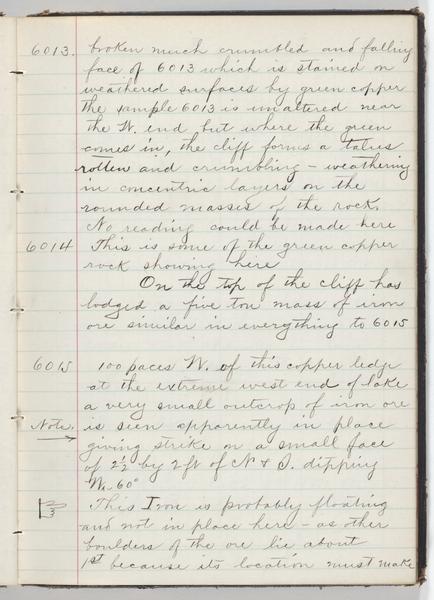 6013. broken much crumbled and falling
face of 6013 which is stained on
weathered surfaces by green copper
the sample 6013 is unaltered near
the W. end but where the green
comes in, the cliff forms a talus
rotten and crumbling - weathering
in concentric layers on the
rounded masses of the rock.
No reading could be made here
6014 This is some of the green copper
rock showing here
On the top of the cliff has
lodged a five ton mass of iron
ore similar in everything to 6015
6015 100 paces W. of this copper ledge
at the extreme west end of lake
a very small outcrop of iron ore
Note. is seen apparently in place
giving strike on a small face
of 2½ by 2 ft of N & S. dipping
W. 60°
This Iron is probably floating
and not in place here - as other
boulders of the ore lie about
1st because its location must make